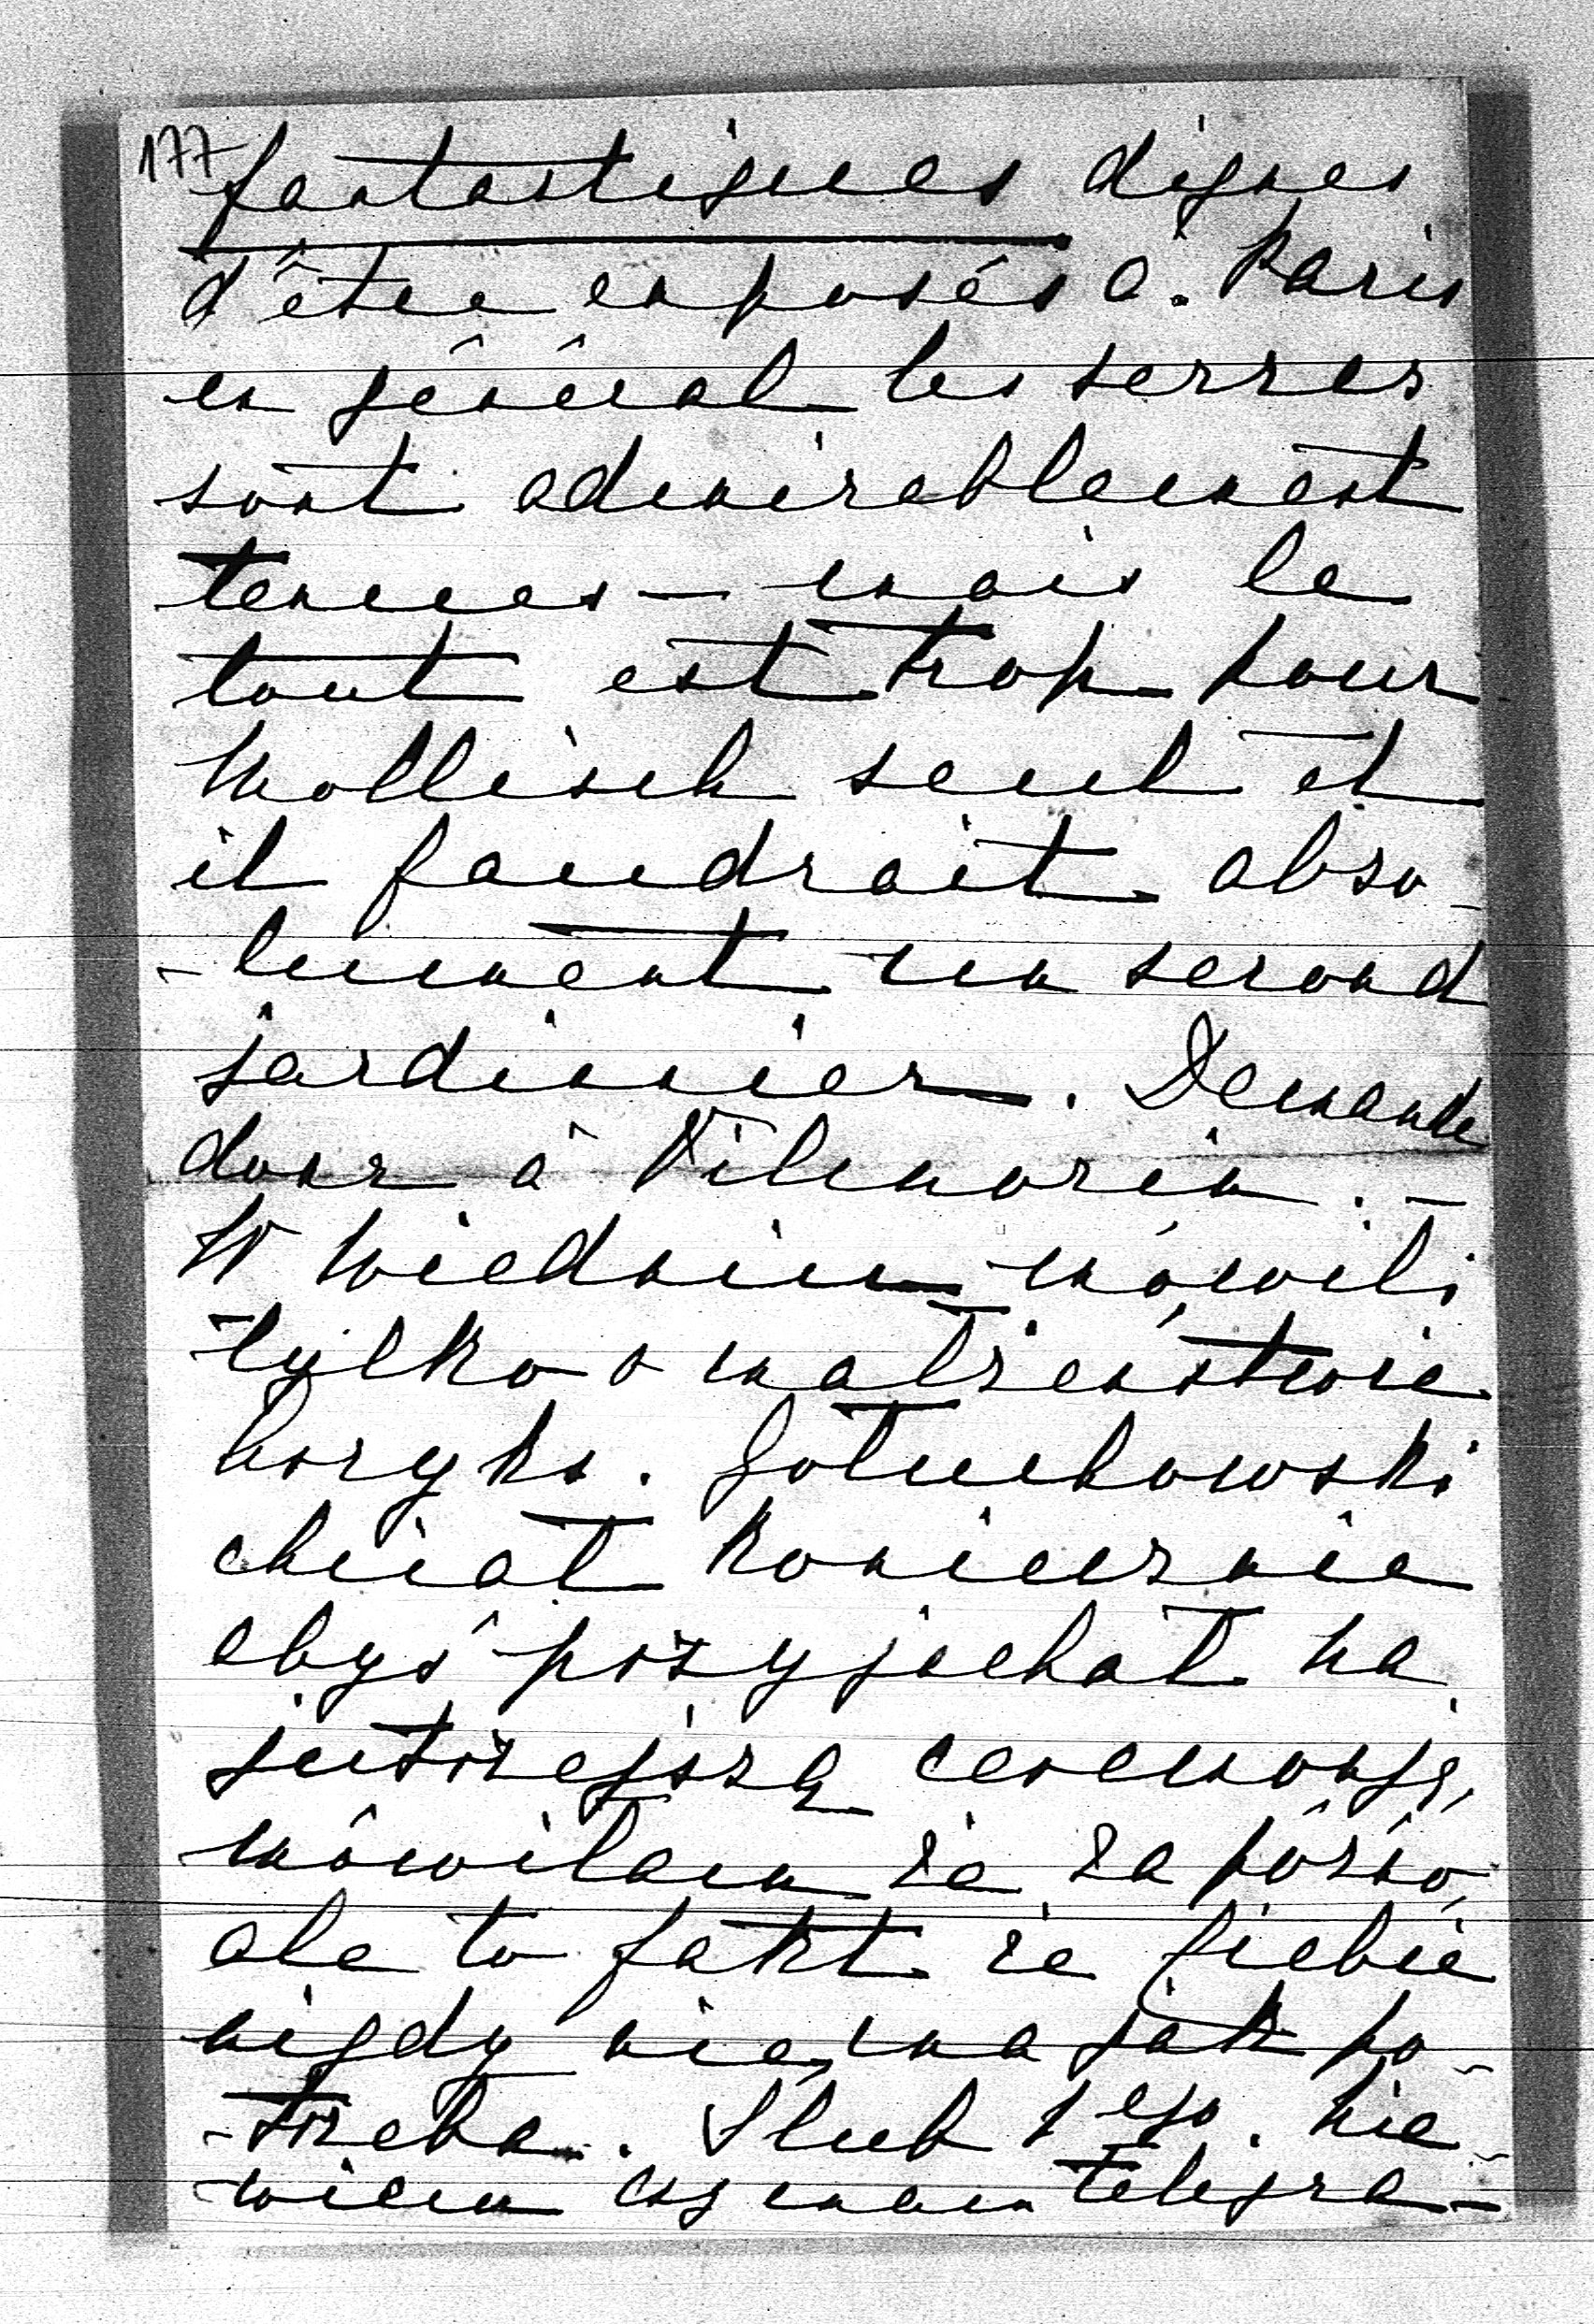 177 fantastiques dignes
d'être exposés à Paris
en général les serres
sont admirablement
tenues — mais le
tout est trop pour
Mollisch seul et
il faudrait abso-
-lument un second
jardinier. Demande
donc à Vilmorin. —
W Wiedniu mówili
tylko o małżeństwie
Gołuchowski
chciał koniecznie
abyś przyjechał na
jutrzejszą ceremonję,
mówiłam że za późno,
ale to fakt że Ciebie
nigdy nie ma jak po-
-trzeba. Ślub 1ego. Nie
wiem czy mam telegra-